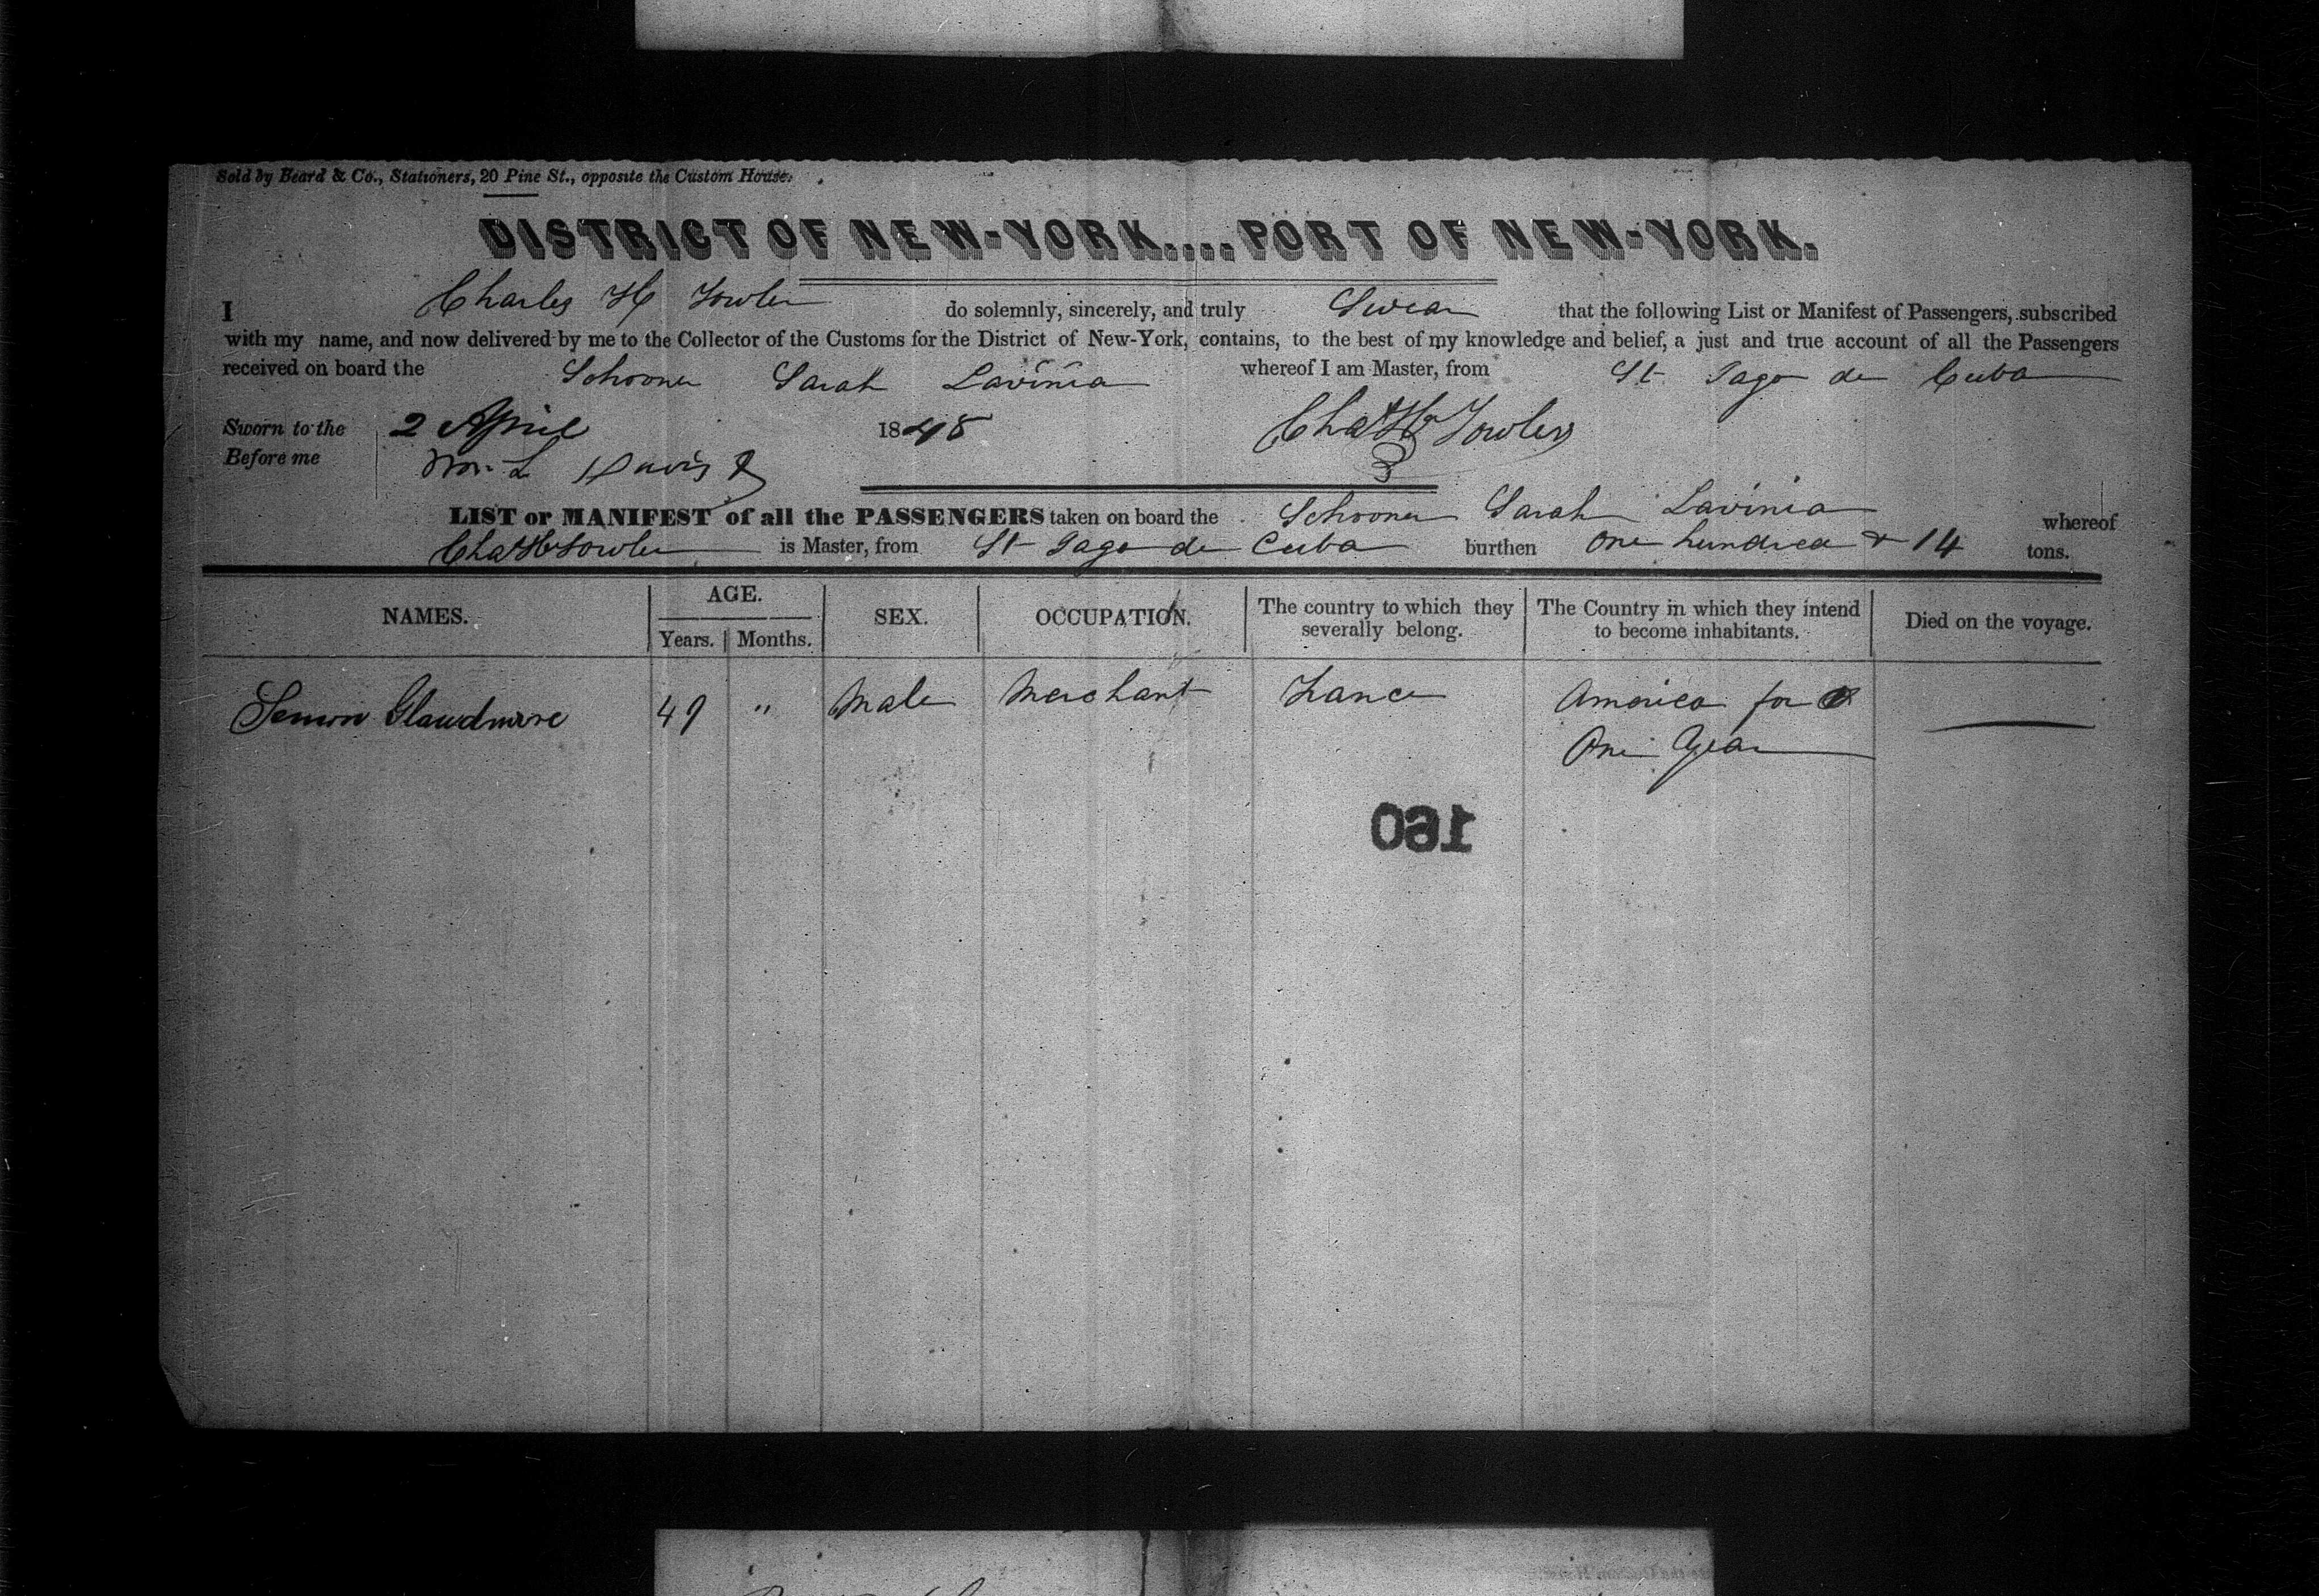 Sold by Beard & Co., Stationers, 20 Pine St., opposite the Custom House.
DISTRICT OF NEW-YORK....PORT OF NEW-YORK.
I Charles H Fowler do solemnly, sincerely, and truly Swear that the following List or Manifest of Passengers, subscribed
with my name, and now delivered by me to the Collector of the Customs for the District of New-York, contains, to the best of my knowledge and belief, a just and true account of all the Passengers
received on board the Schooner Sarah Lavinia whereof I am Master, from St Jago de Cuba
Sworn to the 2 April 1848 Chas H Fowler
Before me Wm L Davis
LIST or MANIFEST of all the PASSENGERS taken on board the Schooner Sarah Lavinia whereof
Chas H Fowler is Master, from St Jago de Cuba burthen One hundred & 14 tons.
NAMES. AGE. Years. Months. SEX. OCCUPATION. The country to which they severally belong. The Country in which they intend to become inhabitants. Died on the voyage.
49 " Male Merchant France America for
One Year
160